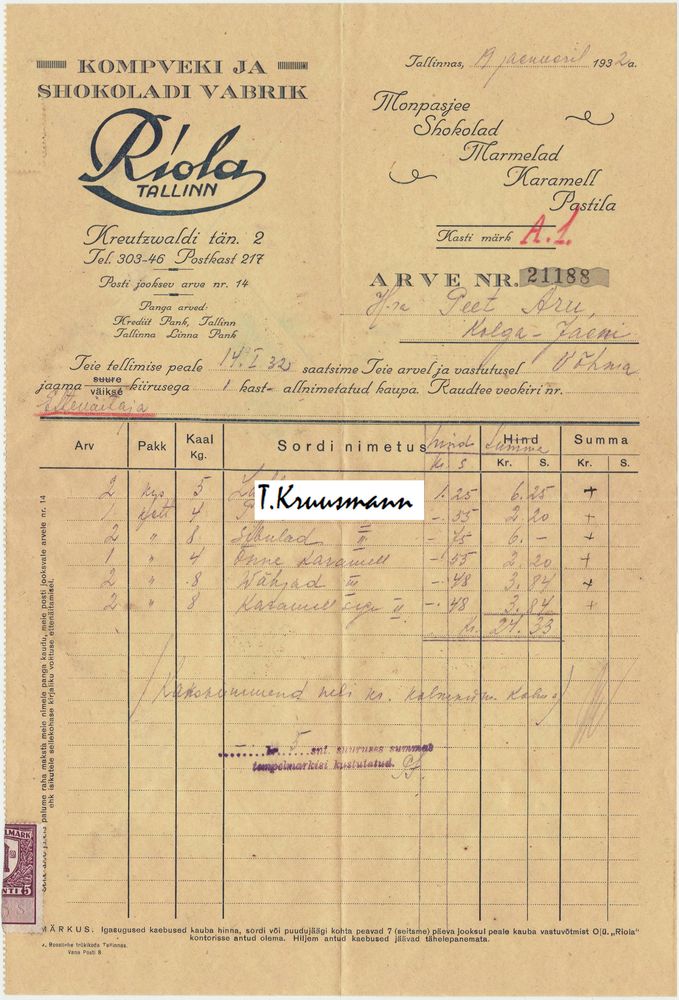 KOMPVEKI JA
SHOKOLADI VABRIK
Riola
TALLINN
Kreutzwaldi tän. 2
Tel. 303-46 Postkast 217
Posti jooksev arve nr. 14
Panga arved:
Krediit Pank, Tallinn
Tallinna Linna Pank
Tallinnas, 19 jaanuaril 1932 a.
Monpasjee
Shokolad
Marmelad
Karamell
Pastila
Kasti märk A.1.
ARVE NR. 21188
H-ra Peet Aru,
Kolga-Jaani
Teie tellimise peale 14.I 32 saatsime Teie arvel ja vastutusel Võhma
jaama suure väikse kiirusega 1 kast- allnimetatud kaupa. Raudtee veokiri nr.
Ettevõtja
Arv Pakk Kaal Kg. Sordi nimetus Hind Kr. S Summa Hind Kr. S. Summa Kr. S.
2 5 1.25 6.25 +
T.Kruusmann
1 4 -.55 2.20 +
2 " 8 Sibulad II -.75 6.- +
1 " 4 Õnne Karamell -.55 2.20 +
2 " 8 Wähjad III -.48 3.84 +
2 " 8 Karamell II -.48 3.84 +
Kr. 24.33
/Kakskümmend neli kr. kolmküm. kolm s/
kr. 5 snt. suuruses summas
tempelmarkisi kustutatud.
palume raha maksta meie nimele panga kaudu, meie posti jooksvale arvele nr. 14
ehk isikutele sellekohase kirjaliku volituse ettenäitamisel.
MARK
1
SENTI 5
MÄRKUS. Igasugused kaebused kauba hinna, sordi või puudujäägi kohta peavad 7 (seitsme) päeva jooksul peale kauba vastuvõtmist O|ü. „Riola"
kontorisse antud olema. Hiljem antud kaebused jäävad tähelepanemata.
J. Roosilehe trükikoda Tallinnas
Vana Posti 8